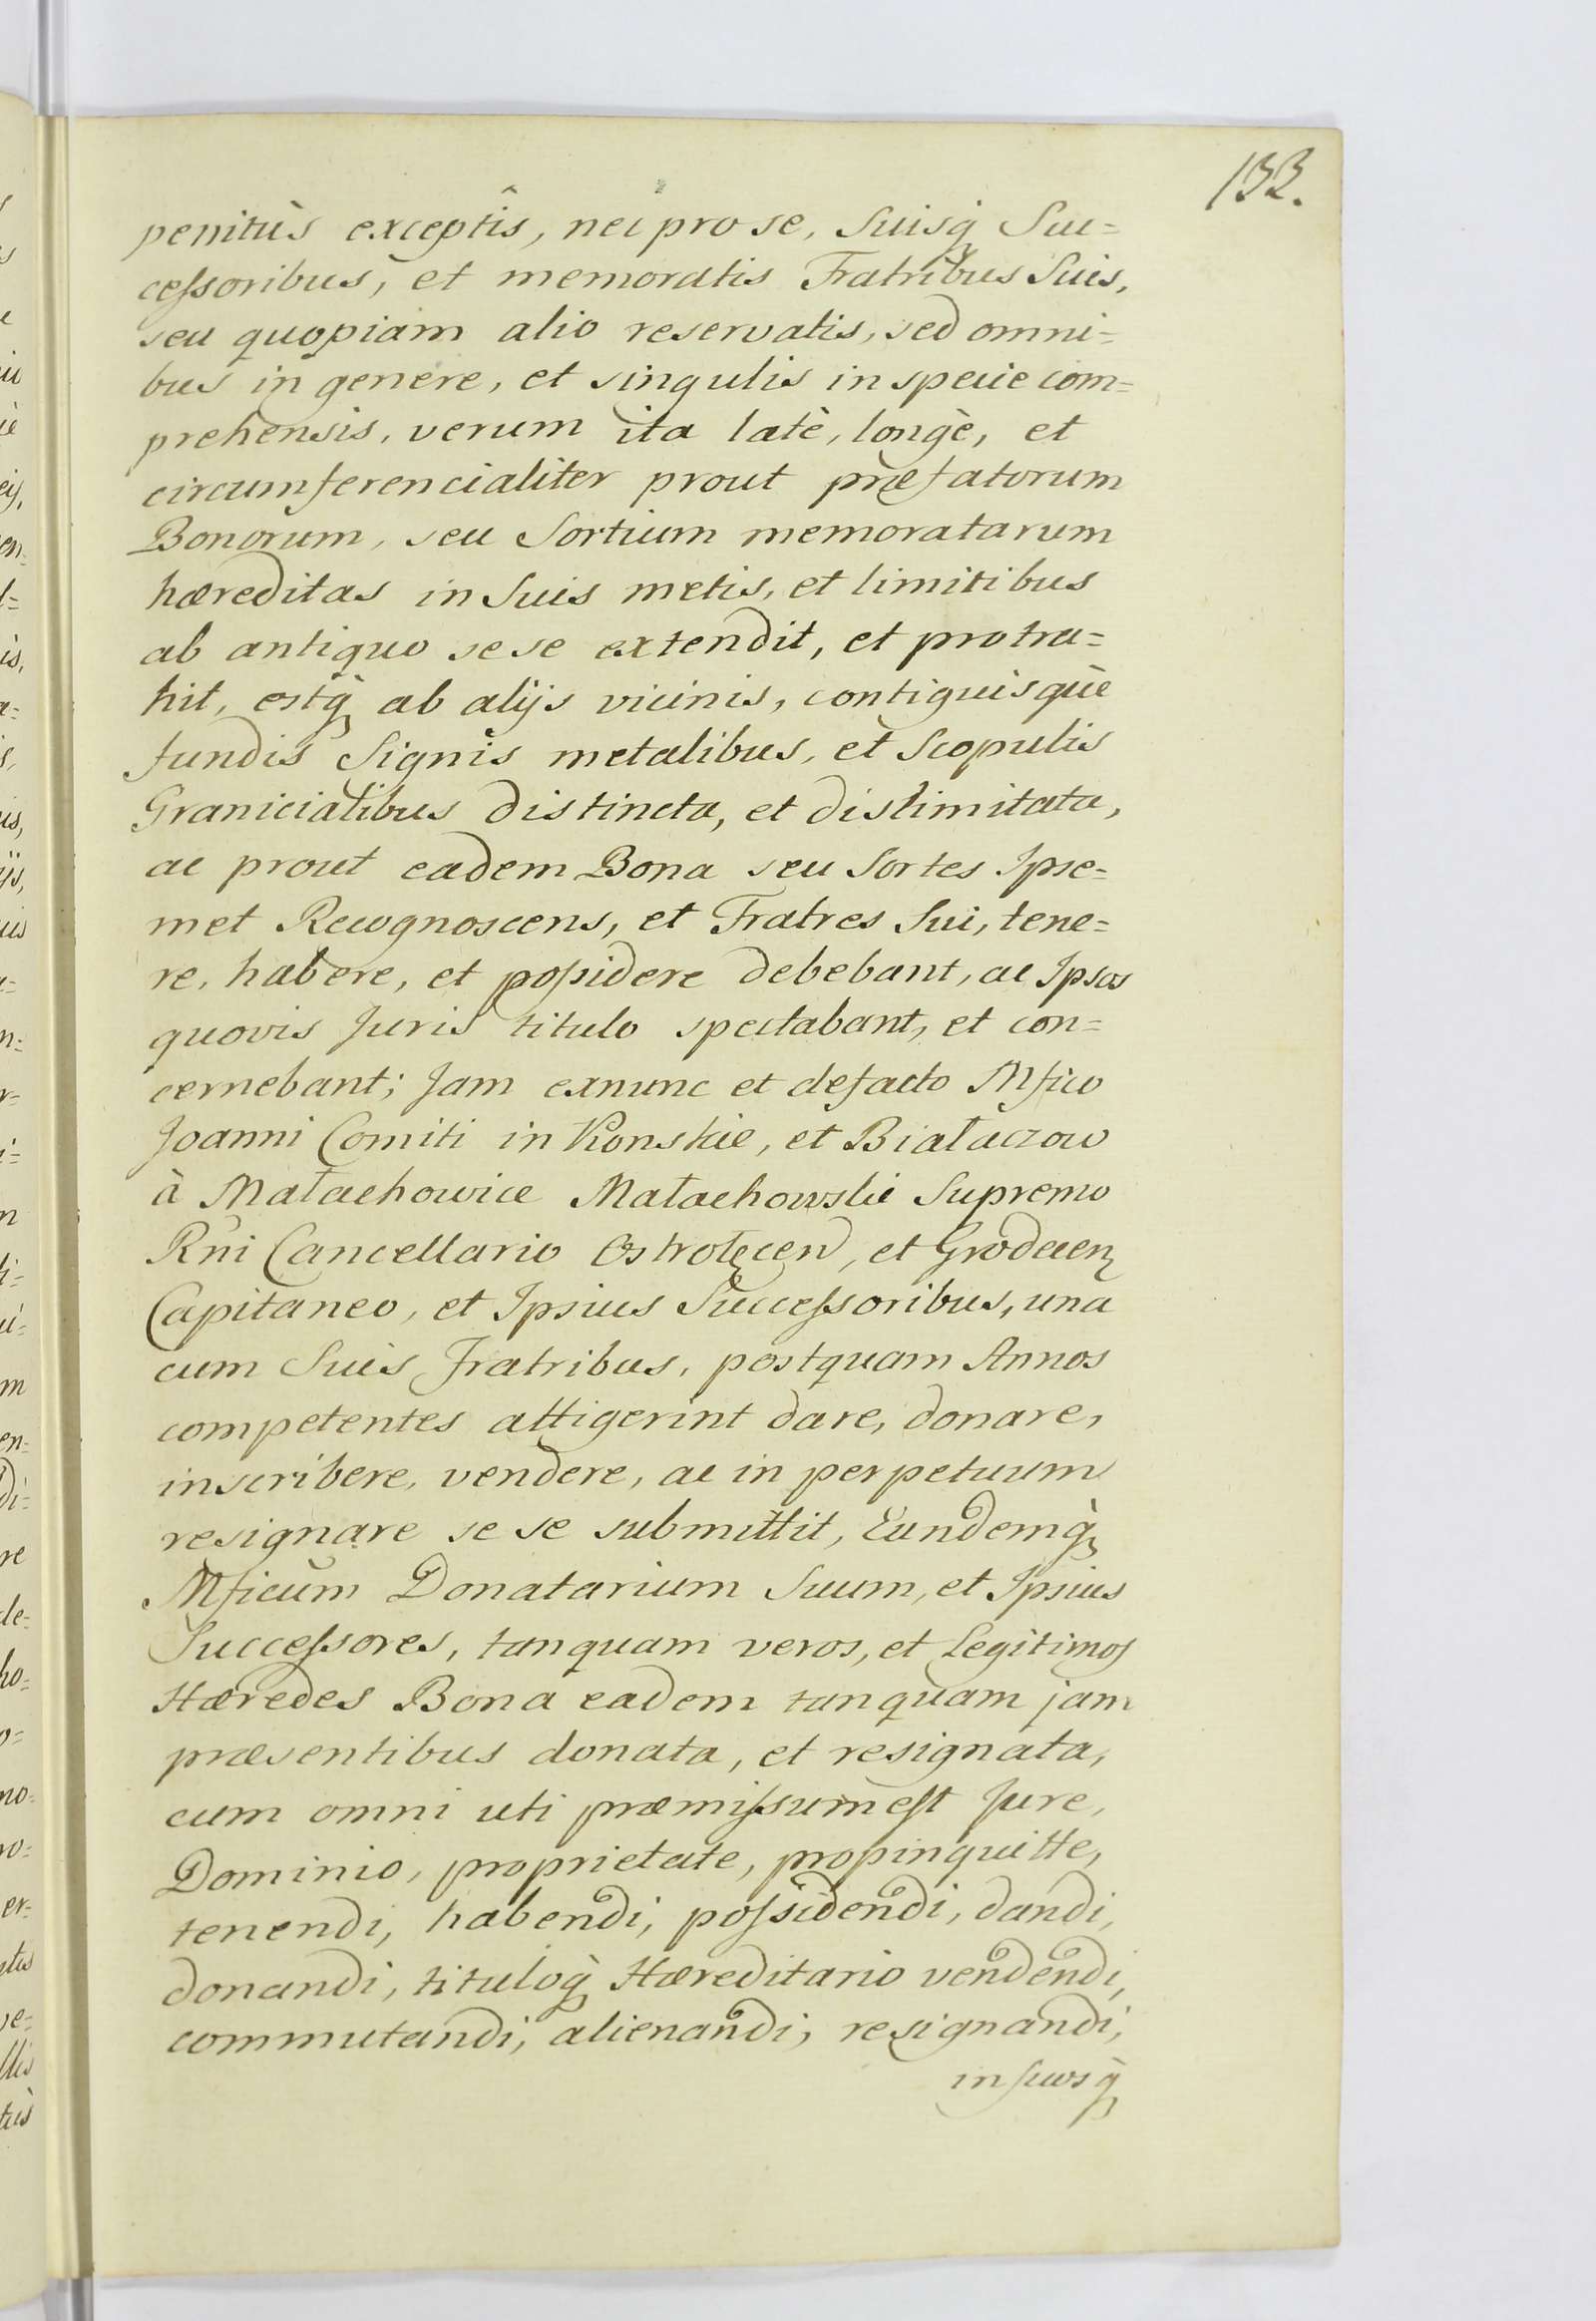 133.
penitùs exceptîs, nec pro se, Suisq̀ Suc=
cessoribus, et memoratis Fratribus Suis,
seu quopiam alio reservatis, sed omni=
bus in genere, et singulis in specie com=
prehensis, verum ita latè, longè, et
circumferencialiter prout præfatorum
Bonorum, seu Sortium memoratarum
hæreditas in Suis metis, et limitibus
ab antiquo se se extendit, et protra=
hit, estq̀ ab alijs vicinis, contiguisquè
fundis Signis metalibus, et Scopulis
Granicialibus distincta, et dislimitata,
ac prout eadem Bona seu Sortes Ipse=
met Recognoscens, et Fratres Sui, tene=
re, habere, et possidere debebant, ac Ipsos
quovis Juris titulo spectabant, et con=
cernebant; Jam exnunc et defacto Mfico
Joanni Comiti in Konskie, et Białaczow
à Małachowice Małachowski Supremo
Rni Cancellario Ostrołęcen, et Grodecen
Capitaneo, et Ipsius Successoribus, una
cum Suis Fratribus, postquam Annos
competentes attigerint dare, donare,
inscribere, vendere, ac in perpetuum
resignare se se submittit, Eundemq̀
Mficum Donatarium Suum, et Ipsius
Successores, tanquam veros, et Legitimos
Hæredes Bona eadem tanquam jam
præsentibus donata, et resignata,
cum omni uti præmissum est Jure,
Dominio, proprietate, propinquitte,
tenendi, habendi, possidendi, dandi,
donandi, tituloq̀ Hæreditario vendendi,
commutandi, alienandi, resignandi,
in suosq̀